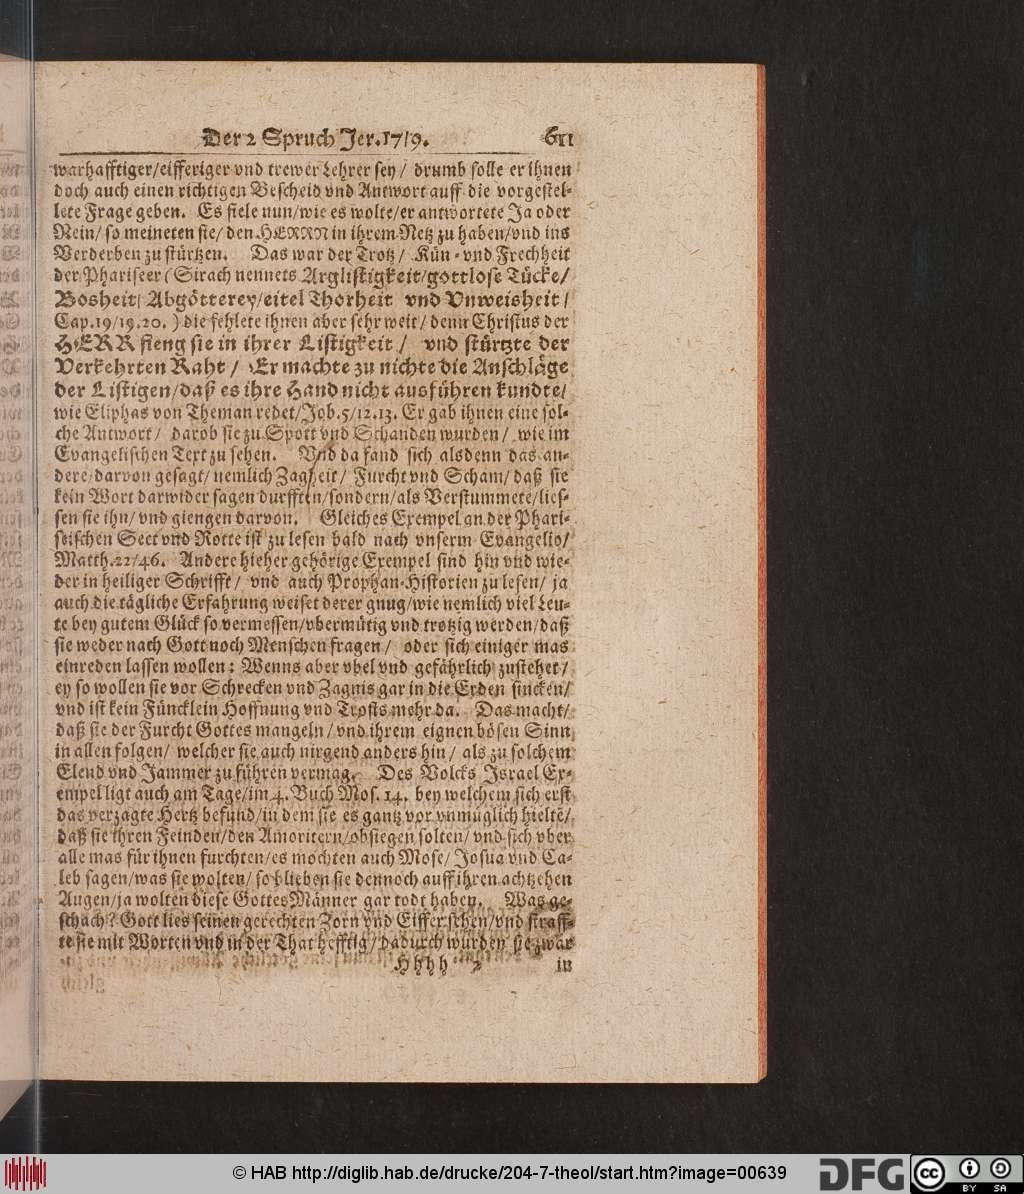 Der 2 Spruch Jer.17/9. 611
warhafftiger/eifferiger vnd trewer Lehrer sey/ drumb solle er ihnen
doch auch einen richtigen Bescheid vnd Antwort auff die vorgestel-
lete Frage geben. Es fiele nun/wie es wolte/er antwortete Ja oder
Nein/ so meineten sie/ den HERRN in ihrem Netz zu haben/vnd ins
Verderben zu stürtzen. Das war der Trotz/ Kün- vnd Frechheit
der Phariseer (Sirach nennets Arglistigkeit/gottlose Tücke/
Bosheit/ Abgötterey/eitel Thorheit vnd Vnweisheit/
Cap.19/19.20.) die fehlete ihnen aber sehr weit/ denn Christus der
HERR fieng sie in ihrer Listigkeit/ vnd stürtzte der
Verkehrten Raht/ Er machte zu nichte die Anschläge
der Listigen/daß es ihre Hand nicht ausführen kundte/
wie Eliphas von Theman redet/Job.5/12.13. Er gab ihnen eine sol-
che Antwort/ darob sie zu Spott vnd Schanden wurden/ wie im
Evangelischen Text zu sehen. Vnd da fand sich alsdenn das an-
dere/darvon gesagt/ nemlich Zagheit/ Furcht vnd Scham/ daß sie
kein Wort darwider sagen durfften/sondern/als Verstummete/lies-
sen sie ihn/ vnd giengen darvon. Gleiches Exempel an der Phari-
seischen Sect vnd Rotte ist zu lesen bald nach vnserm Evangelio/
Matth.22/46. Andere hieher gehörige Exempel sind hin vnd wie-
der in heiliger Schrifft/ vnd auch Prophan-Historien zu lesen/ ja
auch die tägliche Erfahrung weiset derer gnug/wie nemlich viel Leu-
te bey gutem Glück so vermessen/vbermütig vnd trotzig werden/daß
sie weder nach Gott noch Menschen fragen/ oder sich einiger mas
einreden lassen wollen: Wenns aber vbel vnd gefährlich zustehet/
ey so wollen sie vor Schrecken vnd Zagnis gar in die Erden sincken/
vnd ist kein Füncklein Hoffnung vnd Trosts mehr da. Das macht/
daß sie der Furcht Gottes mangeln/ vnd ihrem eignen bösen Sinn
in allen folgen/ welcher sie auch nirgend anders hin/ als zu solchem
Elend vnd Jammer zu führen vermag. Des Volcks Israel Ex-
empel ligt auch am Tage/im 4. Buch Mos. 14. bey welchem sich erst
das verzagte Hertz befund/in dem sie es gantz vor vnmüglich hielte/
daß sie ihren Feinden/den Amoritern/obsiegen solten/ vnd sich vber
alle mas für ihnen furchten/es mochten auch Mose/ Josua vnd Ca-
leb sagen/was sie wolten/ so blieben sie dennoch auff ihren achtzehen
Augen/ja wolten diese Gottes Männer gar todt haben. Was ge-
schach? Gott lies seinen gerechten Zorn vnd Eiffer sehen/vnd straff-
te sie mit Worten vnd in der That hefftig/ dadurch wurden sie zwar
Hhhh 2 in
© HAB http://diglib.hab.de/drucke/204-7-theol/start.htm?image=00639
DFG
cc
BY SA